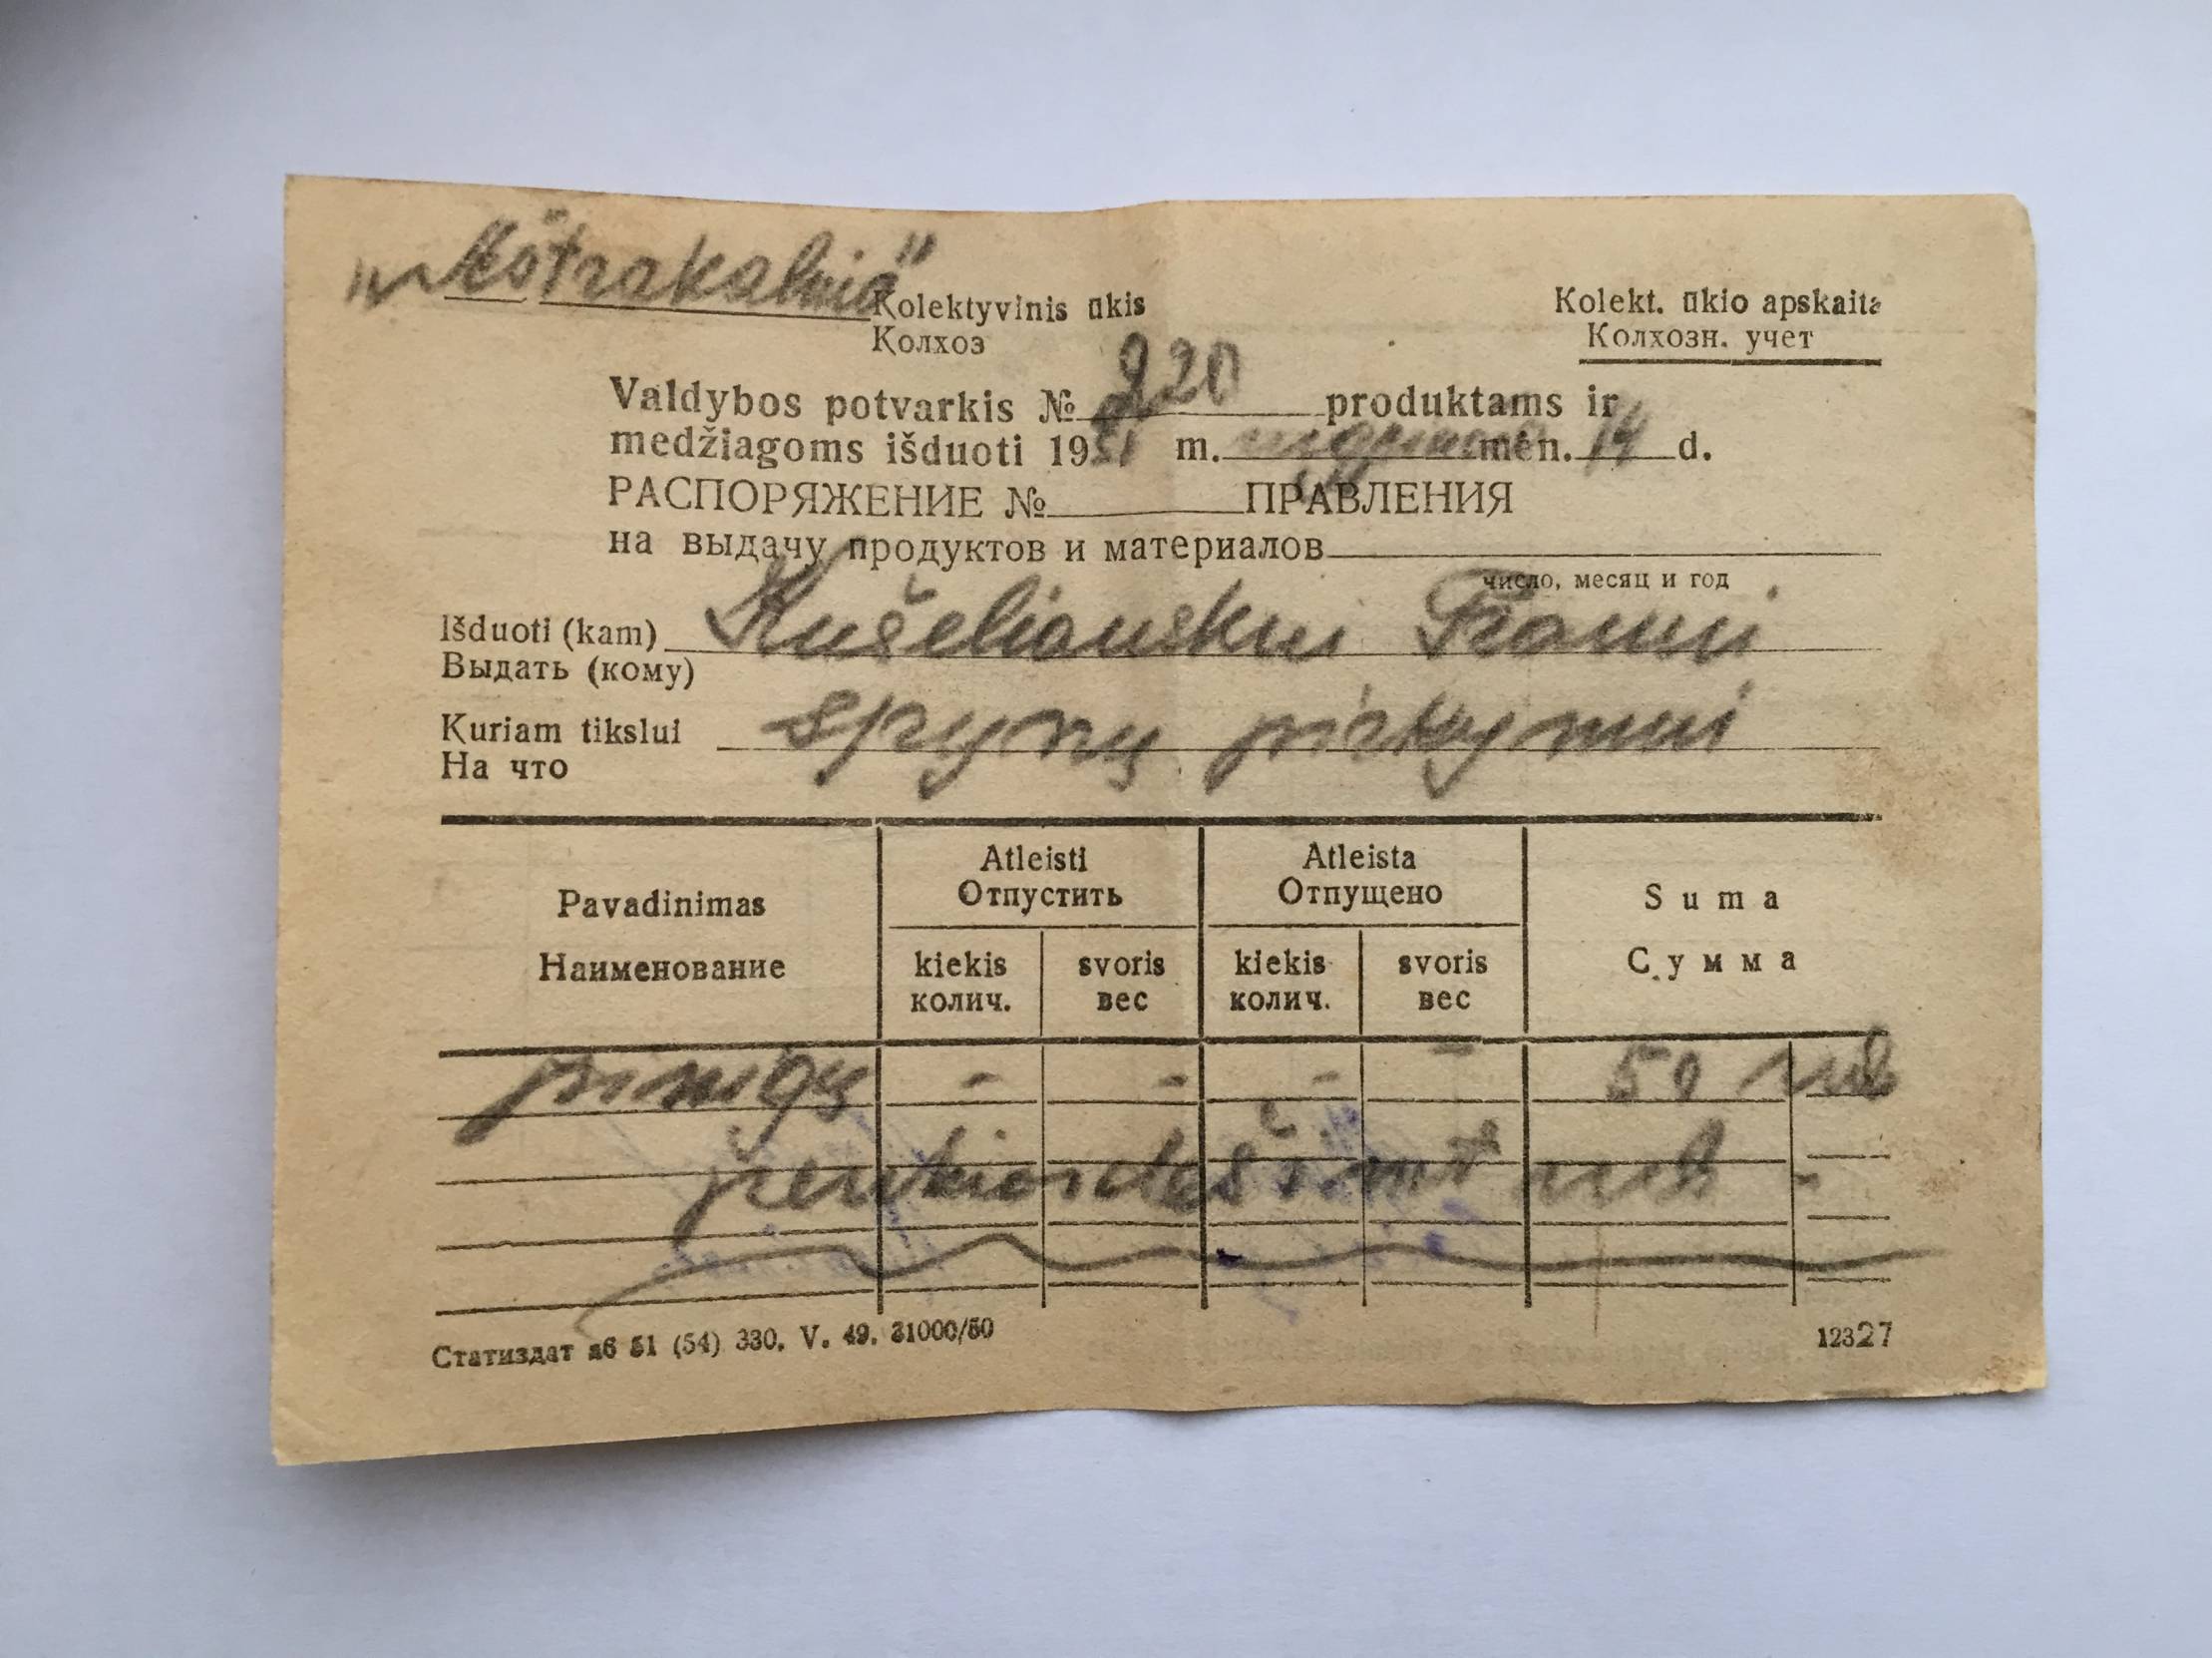 „Aštrakalnio" Kolektyvinis ūkis
Колхоз
Kolekt. ūkio apskaita
Колхозн. учет
Valdybos potvarkis № 220 produktams ir
medžiagoms išduoti 1951 m. mėn. 14 d.
РАСПОРЯЖЕНИЕ № ПРАВЛЕНИЯ
на выдачу продуктов и материалов
число, месяц и год
Išduoti (kam) Kušeliauskui Pranui
Выдать (кому)
Kuriam tikslui spynų pirkymui
На что
Pavadinimas
Наименование
Atleisti
Отпустить
Atleista
Отпущено
Suma
Сумма
kiekis svoris kiekis svoris
колич. вес колич. вес
pinigų - - - - 50 rub
penkiasdešimt rub -
Статиздат 51 (54) 330. V. 49. 31000/50
12327